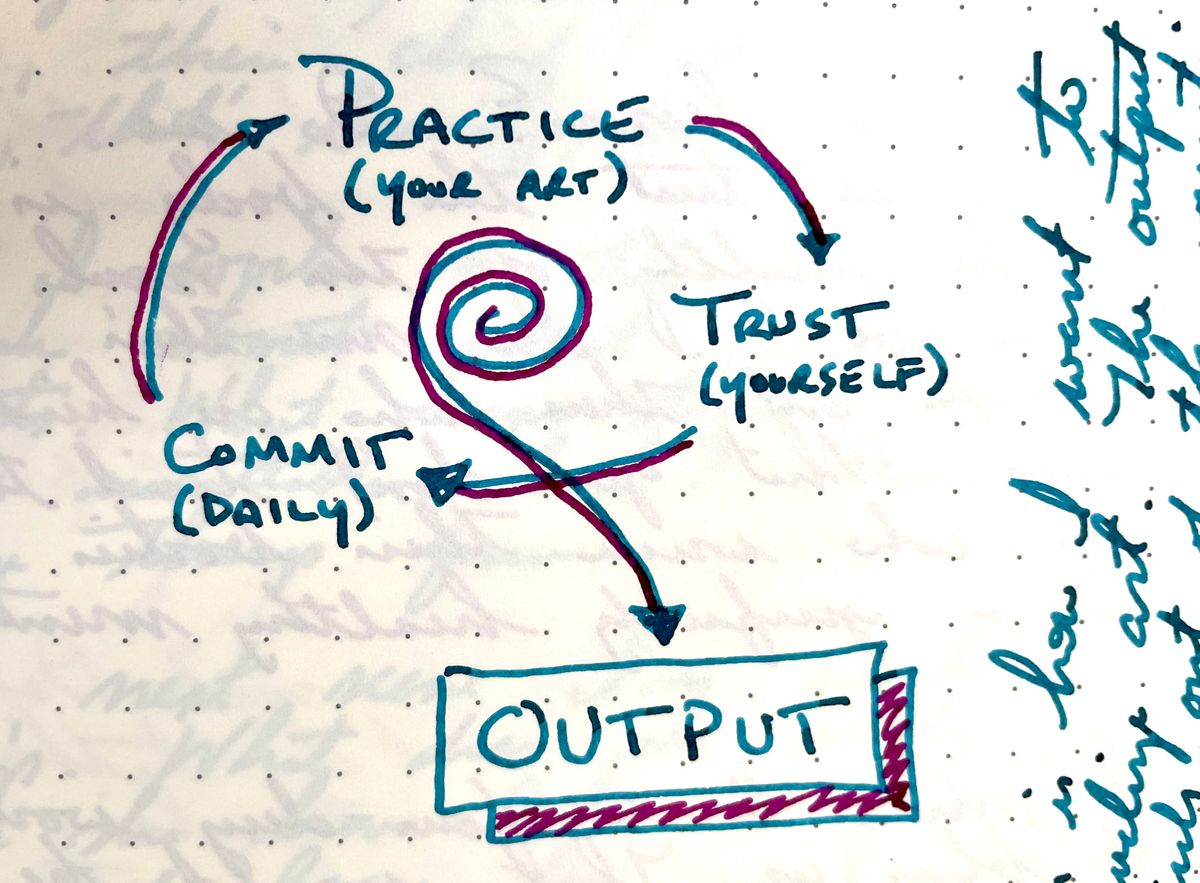 PRACTICE
(YOUR ART)
TRUST
(YOURSELF)
COMMIT
(DAILY)
OUTPUT
is how I want to
art. The output
out